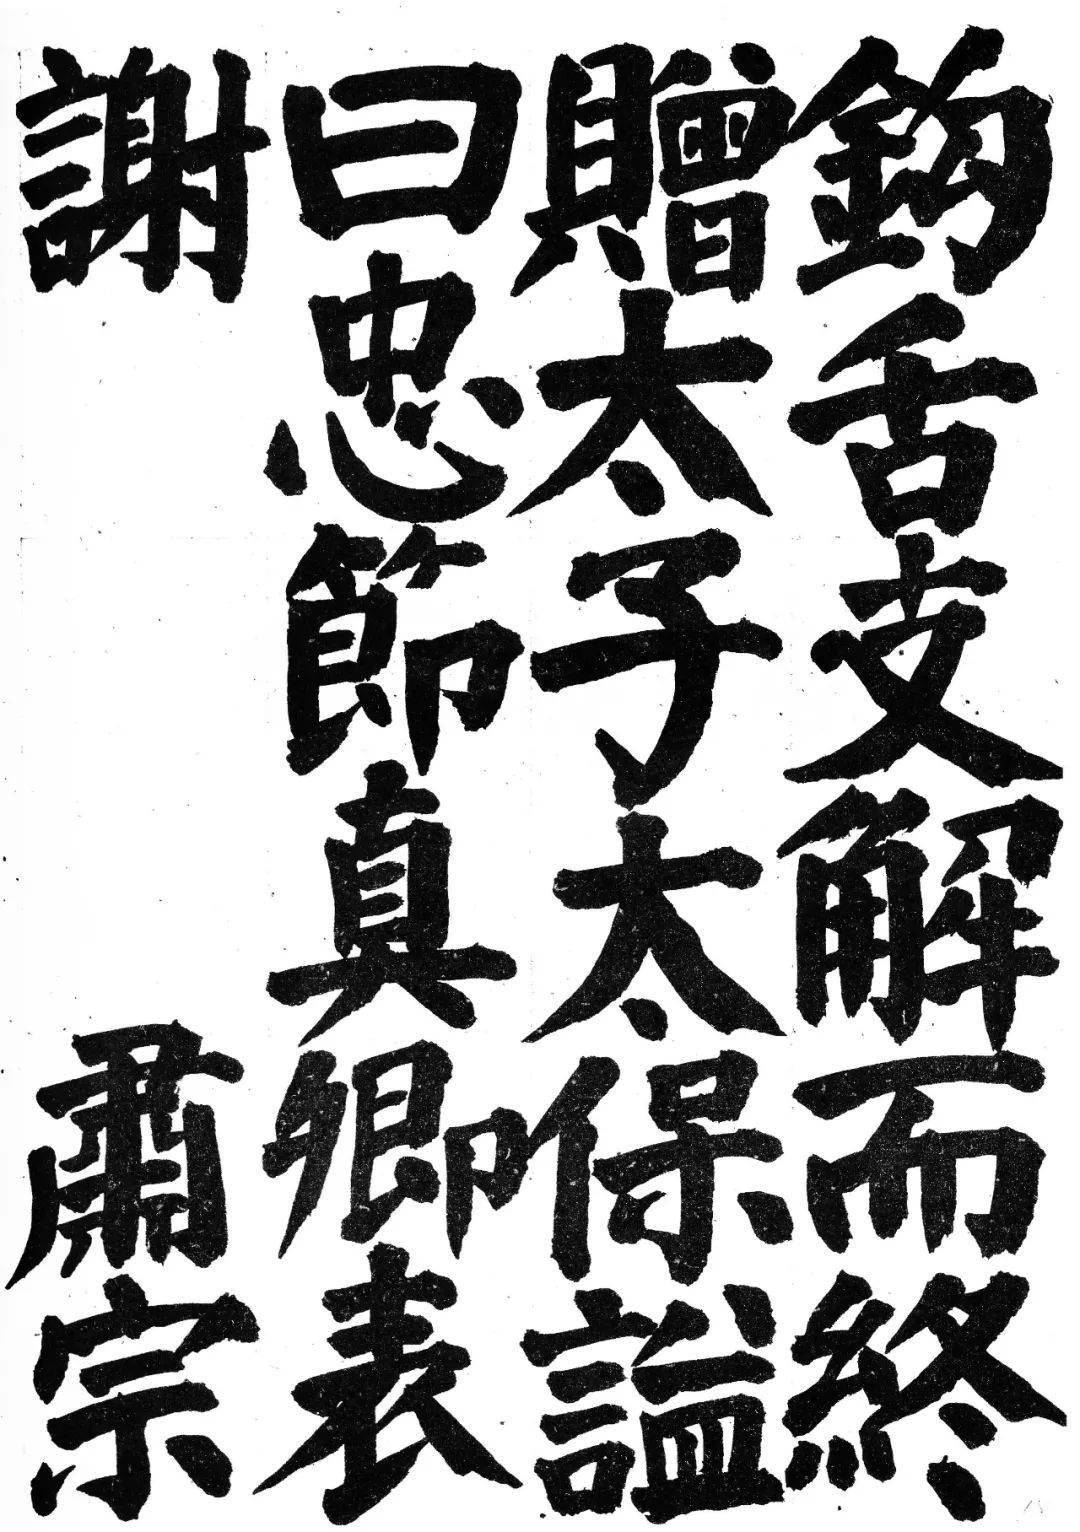 鉤舌支解而終
贈太子太保謚
曰忠節真卿表
謝 肅宗